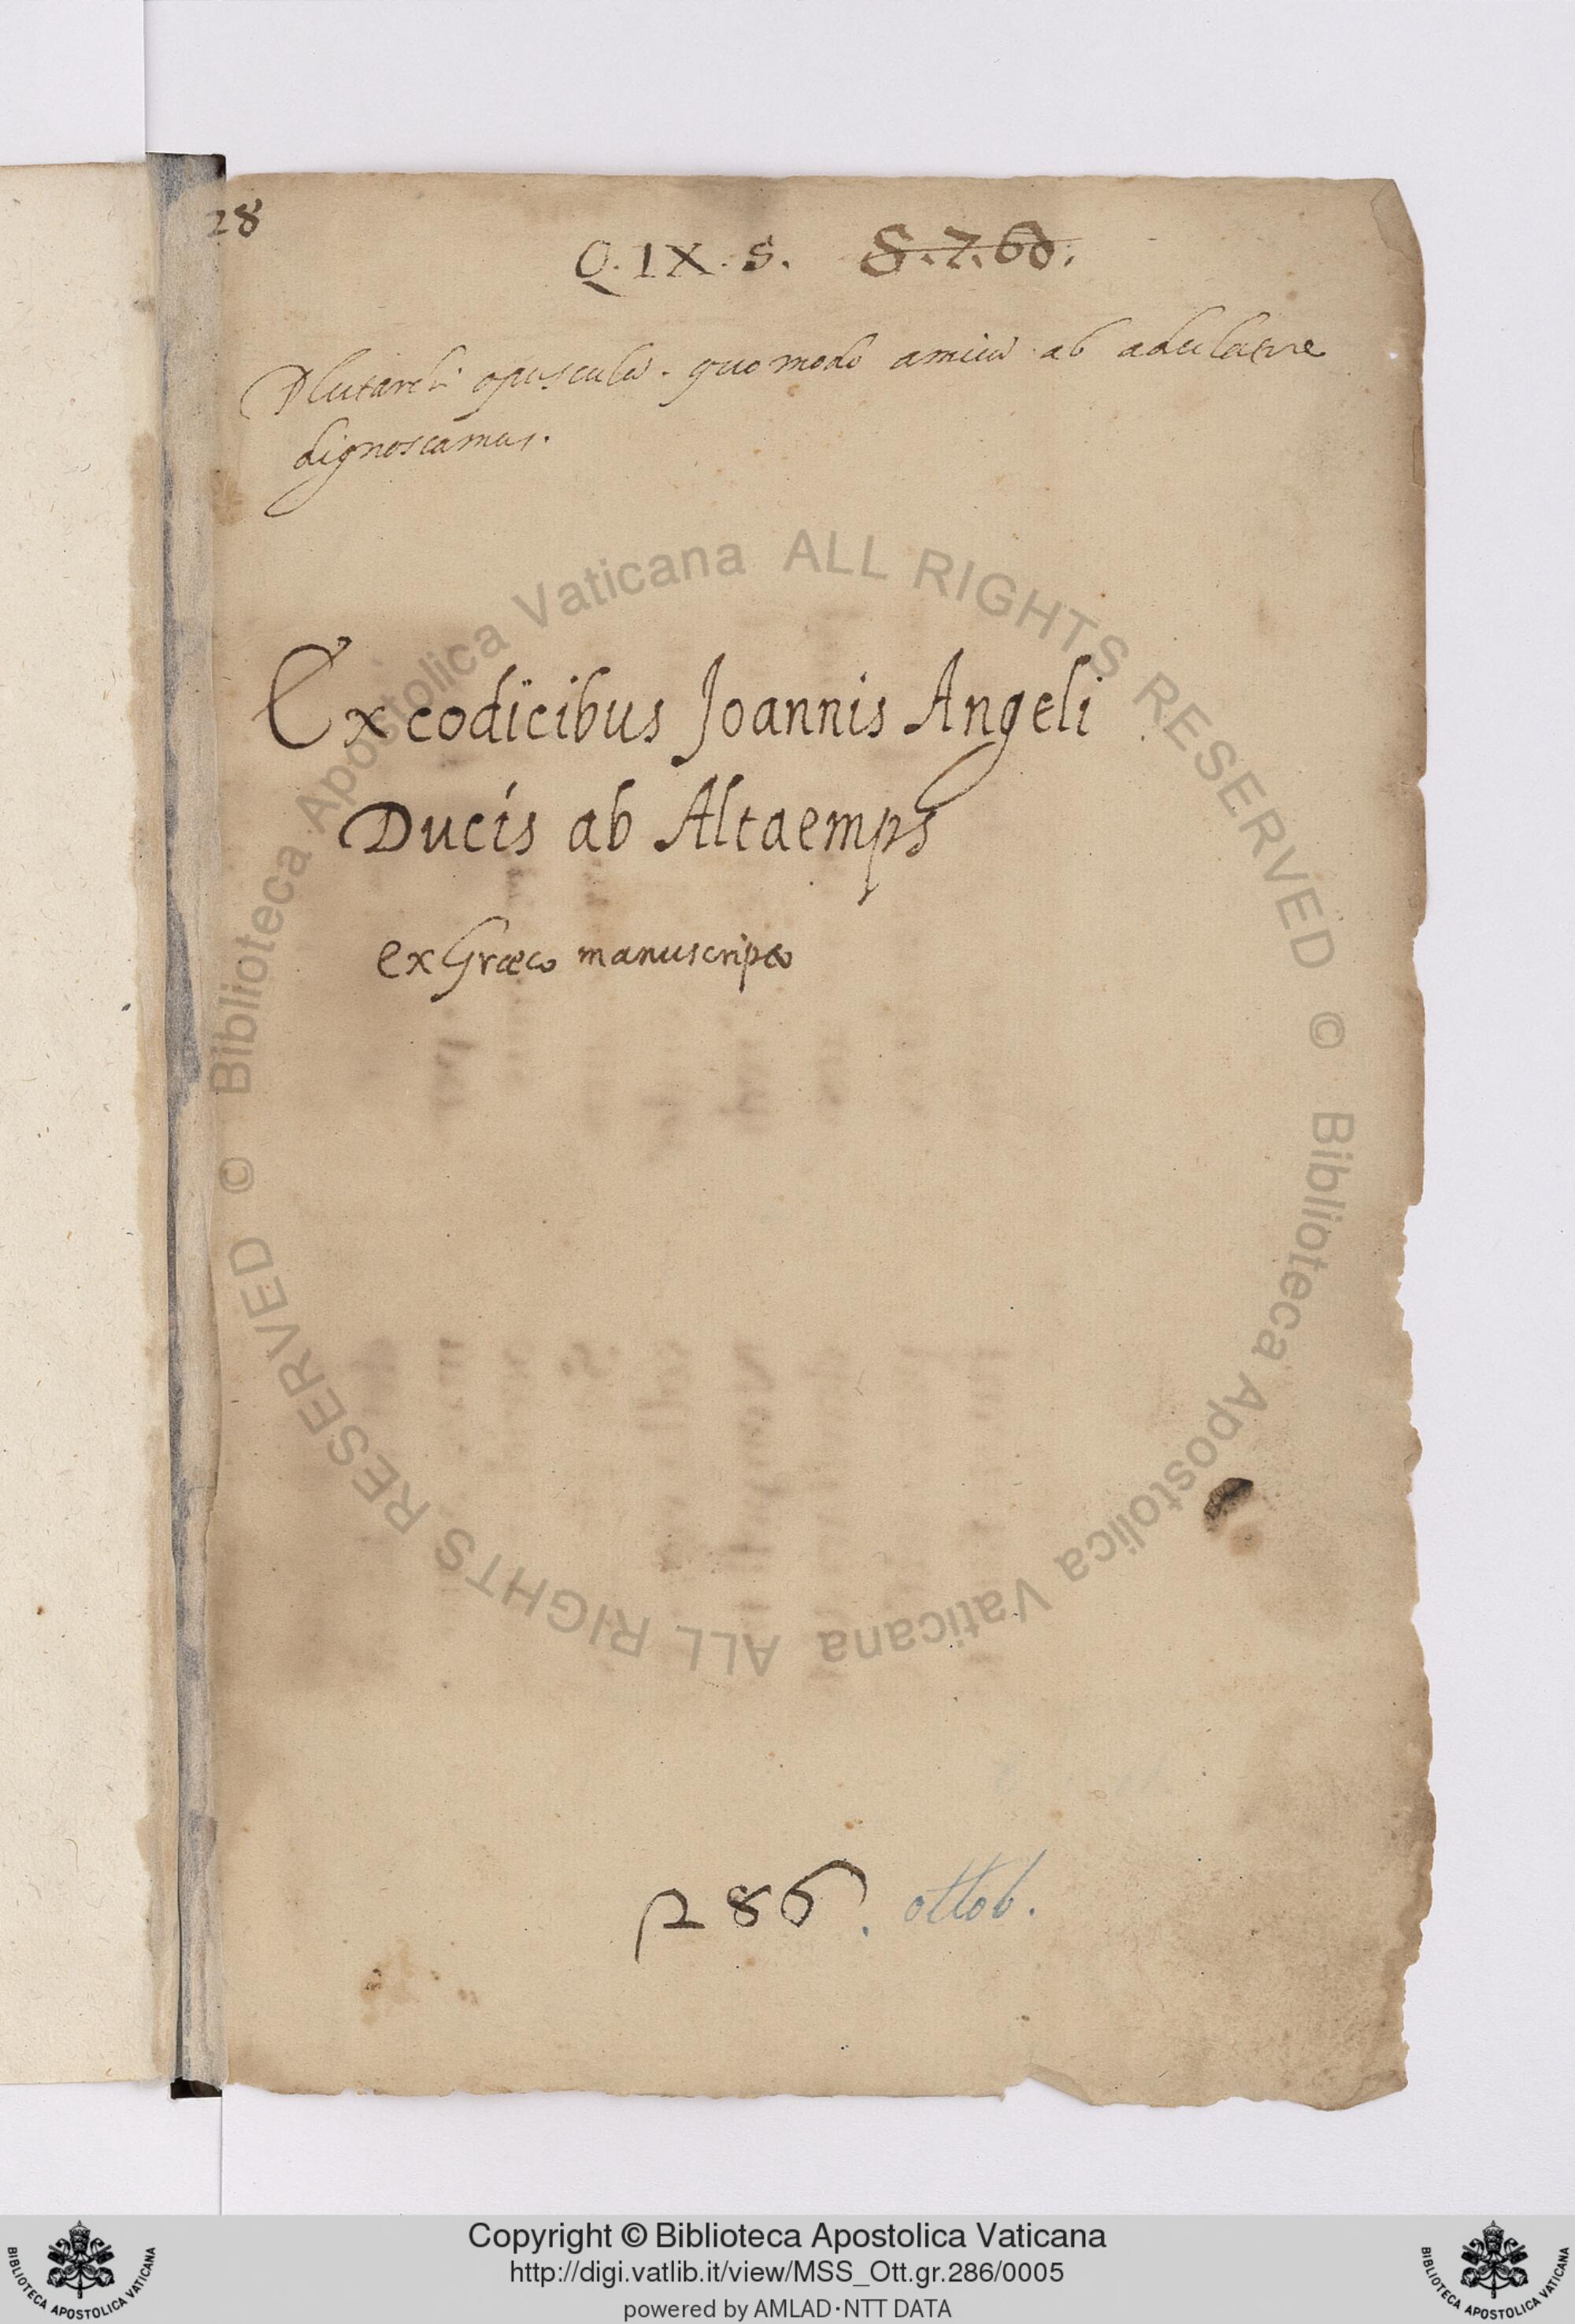 28
Q. IX. S. S.7.60.
Plutarchi opusculũ. quomodo amicũ ab adulatore
dignoscamus.
Ex codicibus Joannis Angeli
Ducis ab Altaemps
ex Græco manuscripto
286. ottob.
© Biblioteca Apostolica Vaticana ALL RIGHTS RESERVED
© Biblioteca Apostolica Vaticana ALL RIGHTS RESERVED
Copyright © Biblioteca Apostolica Vaticana
http://digi.vatlib.it/view/MSS_Ott.gr.286/0005
powered by AMLAD·NTT DATA
BIBLIOTECA APOSTOLICA VATICANA
BIBLIOTECA APOSTOLICA VATICANA